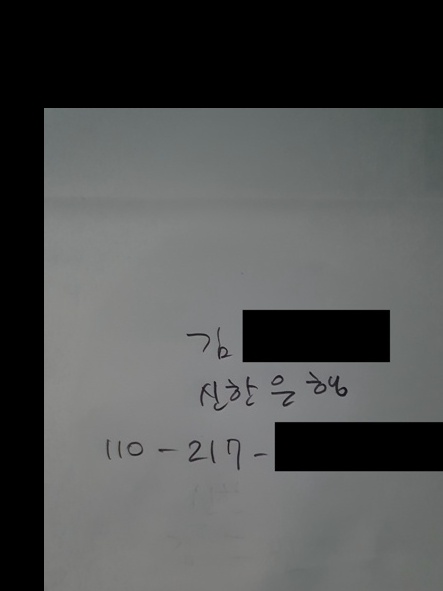 김
신한은행
110-217-